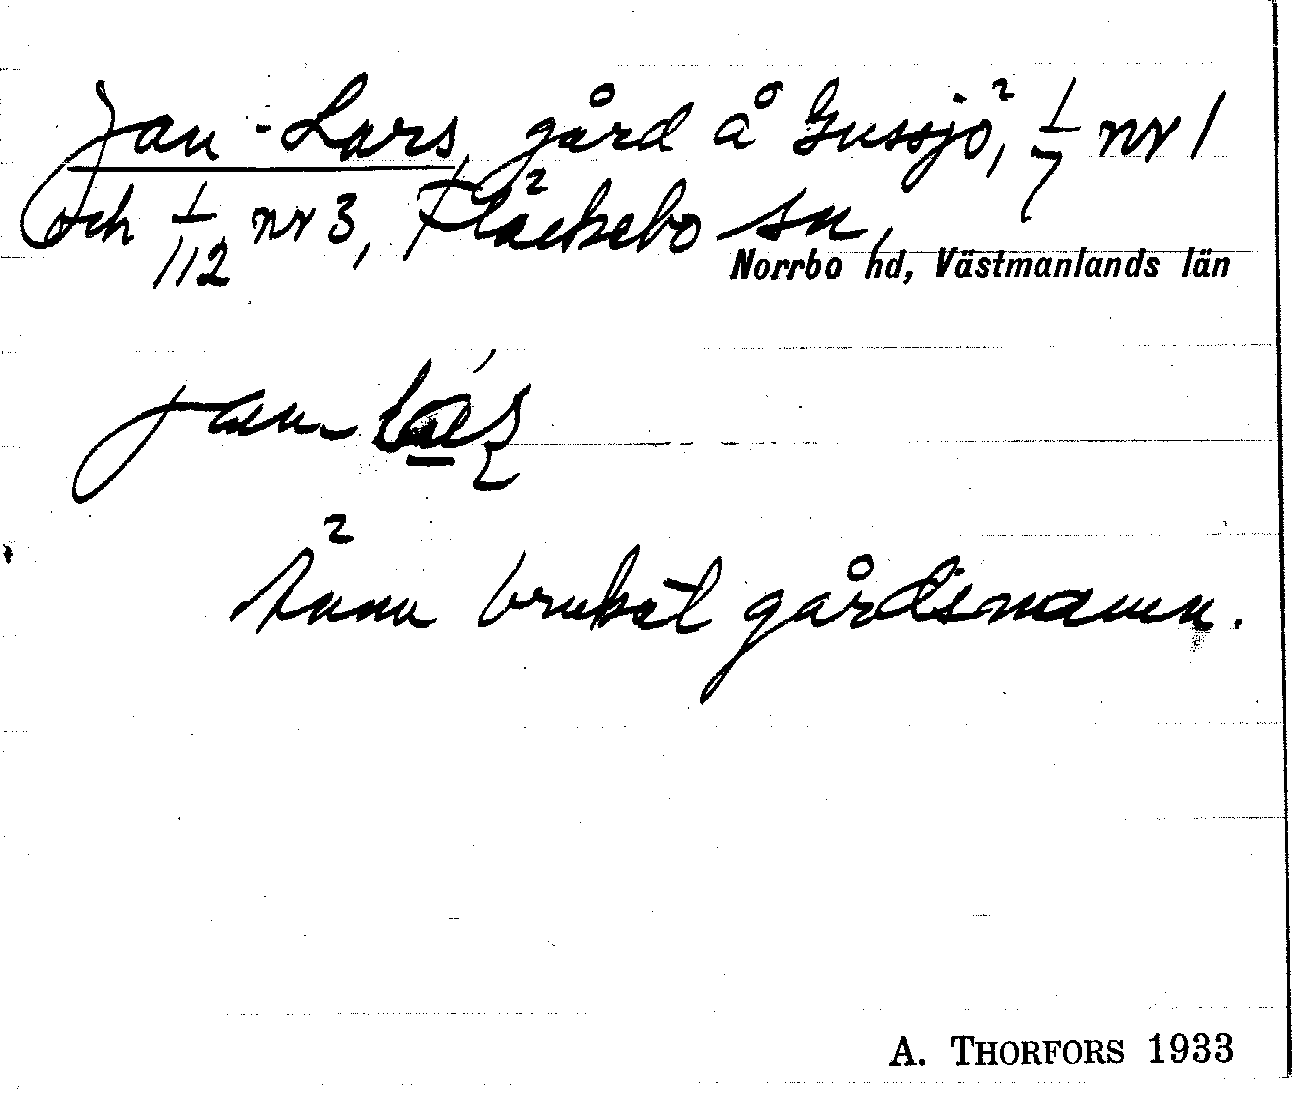 Jan-Lars, gård å Gussjö, 1/7 nr 1
och 1/112 nr 3, Fläckebo sn,
Norrbo hd, Västmanlands län
Ännu brukat gårdsnamn.
A. THORFORS 1933